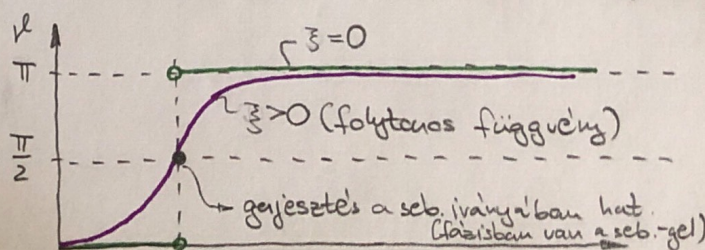 ϑ
ξ=0
π
ξ>0 (folytonos függvény)
π/2
gerjesztés a seb. irányában hat.
(fázisban van a seb.-gel)